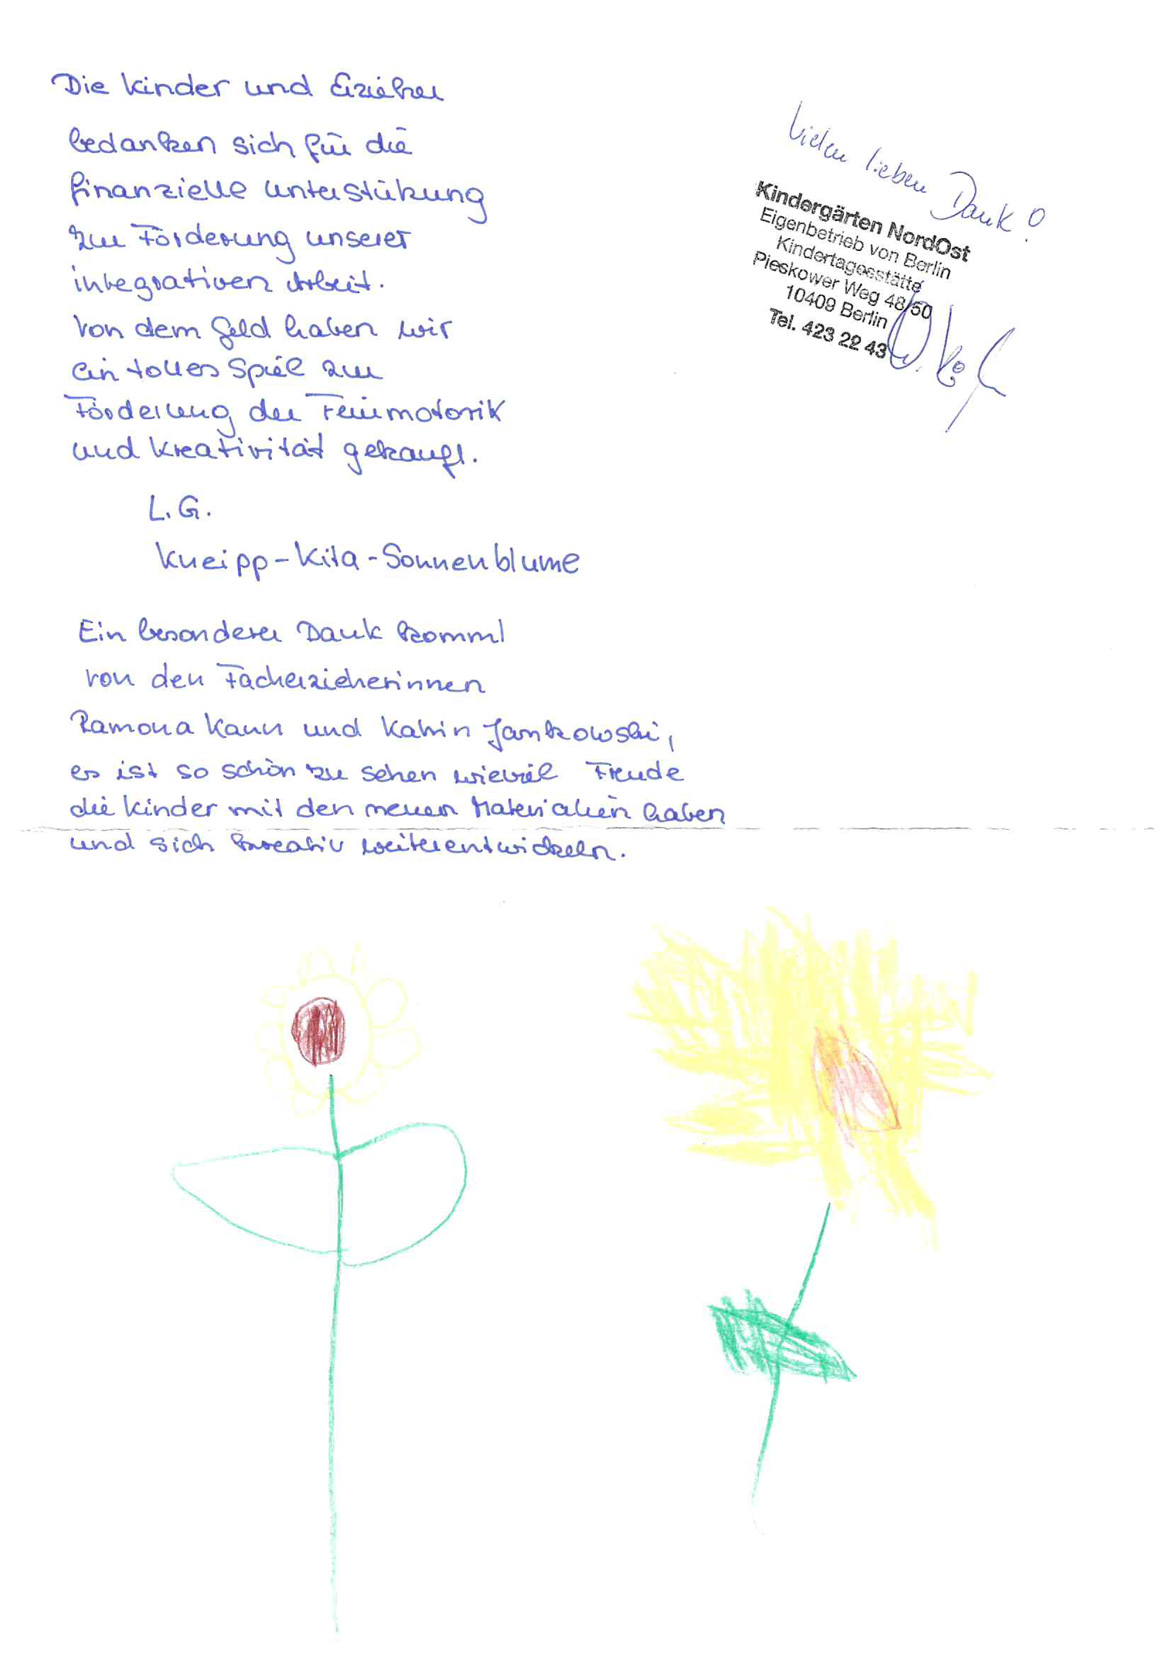 Die Kinder und Erzieher
bedanken sich für die
finanzielle Unterstükung
zur Förderung unserer
integrativen Arbeit.
Von dem Geld haben wir
ein tolles Spiel zur
Förderung der Feinmotorik
und Kreativität gekauft.
L.G.
Kneipp-Kita-Sonnenblume
Ein besonderer Dank kommt
von den Facherzieherinnen
Ramona Kann und Katrin Jankowski,
es ist so schön zu sehen wieviel Freude
die Kinder mit den neuen Materialien haben
und sich kreativ weiterentwickeln.
Vielen lieben Dank!
Kindergärten NordOst
Eigenbetrieb von Berlin
Kindertagesstätte
Pieskower Weg 48/50
10409 Berlin
Tel. 423 22 43